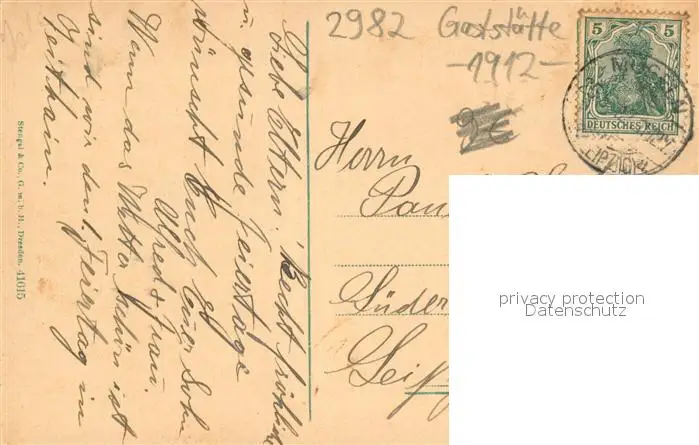 2982 Gaststätte
-1912-
2€
5 5
DEUTSCHES REICH
Liebe Eltern! Recht fröhl
u. gesunde Feiertage
wünscht Euch Euer Sohn
Alfred u. Frau.
Wenn das Wetter schön ist
sind wir den 1. Feiertag in
Herrn
Pau
Süder
Leip
privacy protection
Datenschutz
Stengel & Co., G. m. b. H., Dresden. 41615